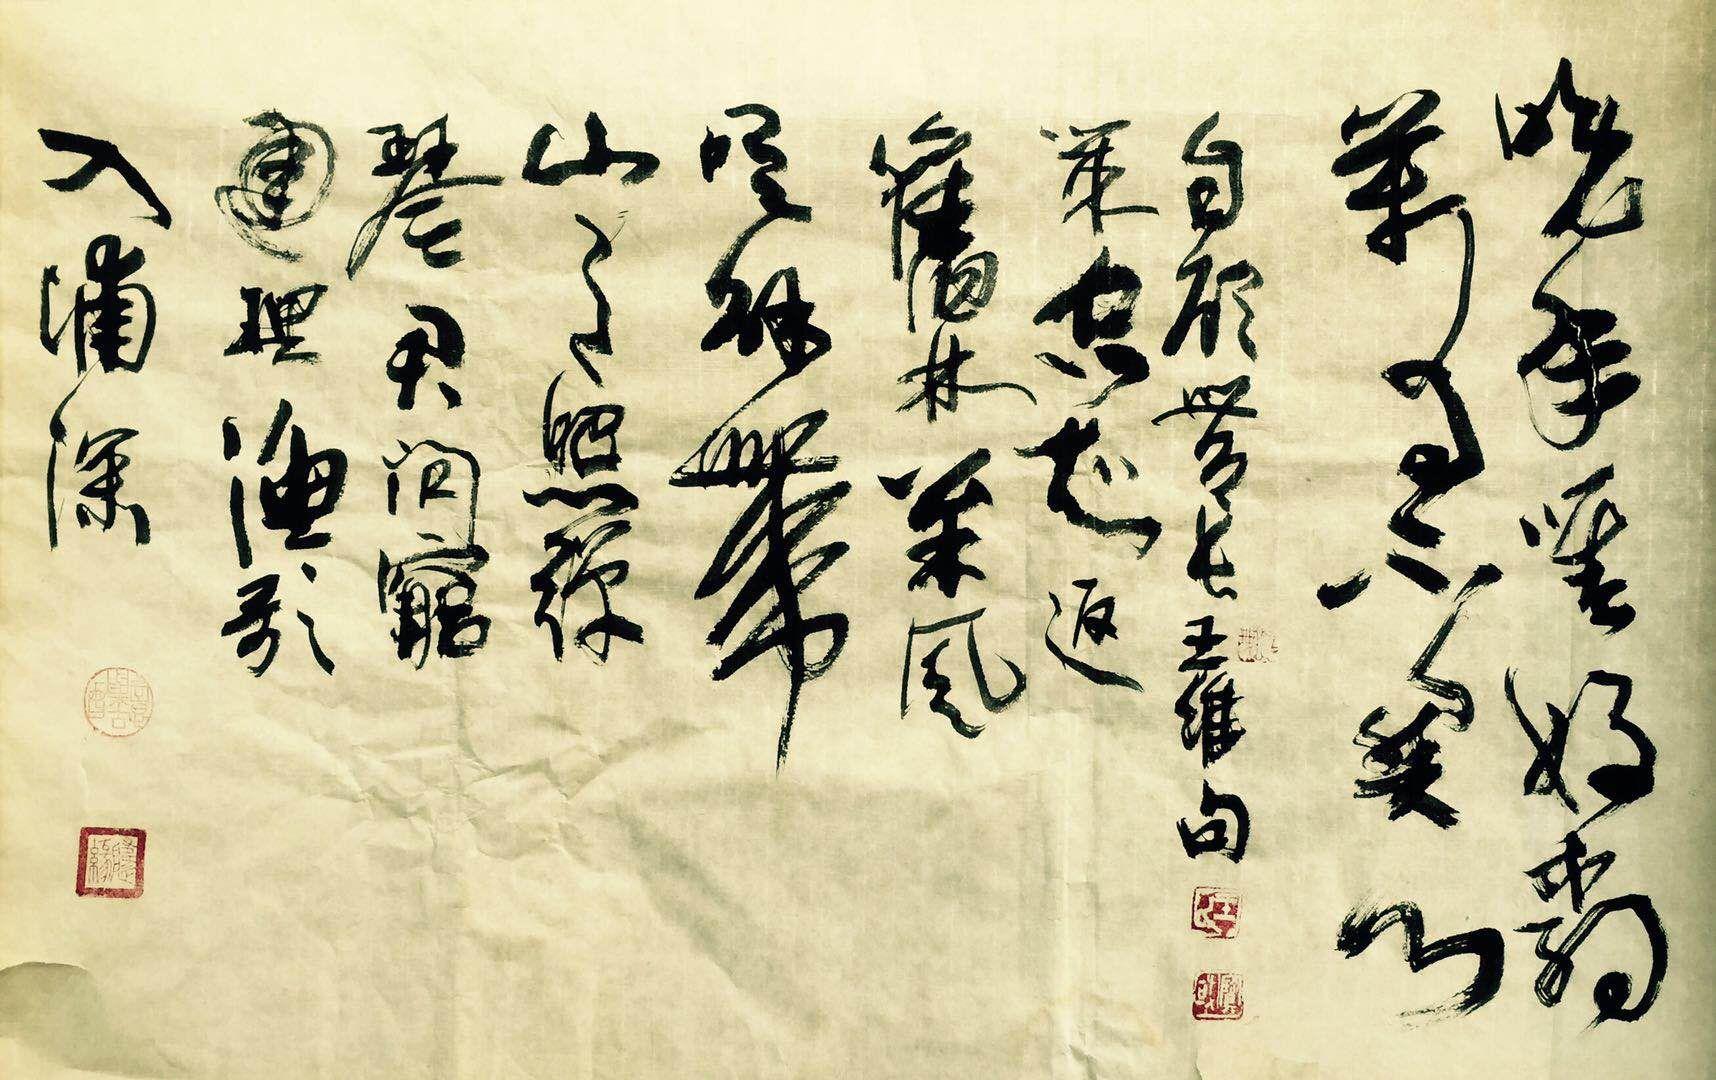 晚年唯好靜
萬事不關心
自顧無長王維句
策空知返
舊林松風
吹解帶
山月照彈
琴君問窮
通理漁歌
入浦深